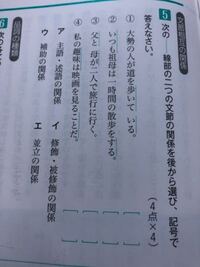 5 次の――線部の二つの文節の関係を後から選び、記号で
答えなさい。
(4点×4)
① 大勢の人が道を歩いている。
② いつも祖母は一時間の散歩をする。
③ 父と母が二人で旅行に行く。
④ 私の趣味は映画を見ることだ。
ア 主語・述語の関係
イ 修飾・被修飾の関係
ウ 補助の関係
エ 並立の関係
6